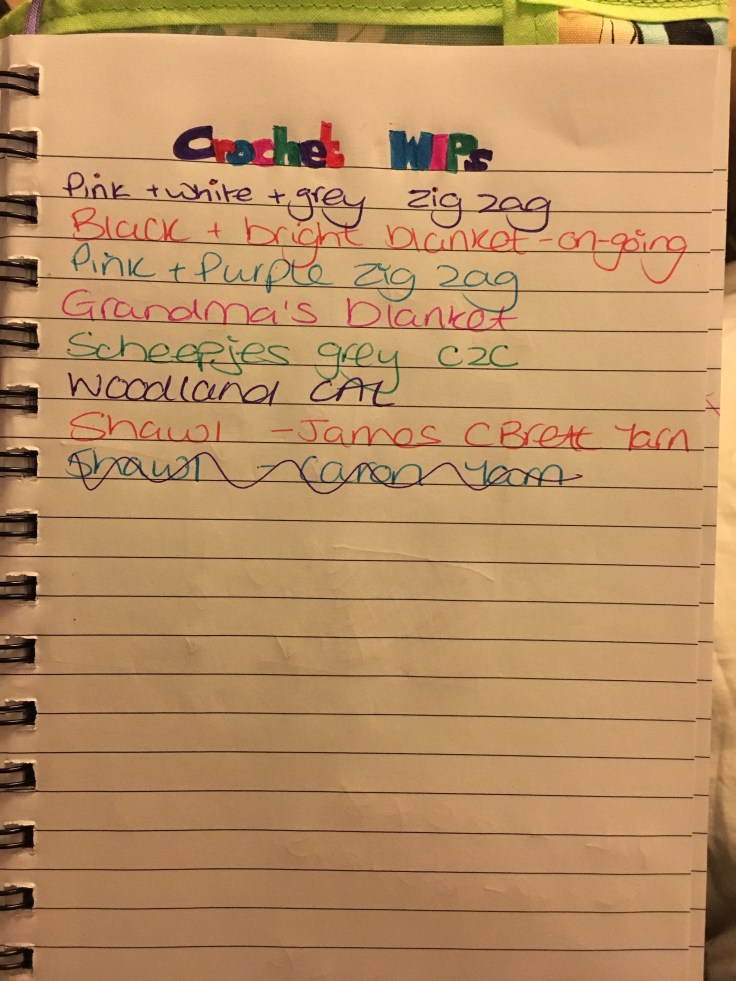 Crochet WIPs
Pink + white + grey zig zag
Black + bright blanket - on-going
Pink + Purple zig zag
Grandma's blanket
Scheepjes grey C2C
Woodland CAL
Shawl - James C Brett Yarn
Shawl - Caron Yarn